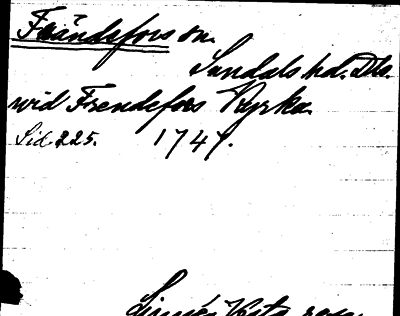 Frändefors sn.
Sundals hd. Dls.
wid Frendefors Kyrka.
Sid. 225. 1747.
Linnés Västg. resa.